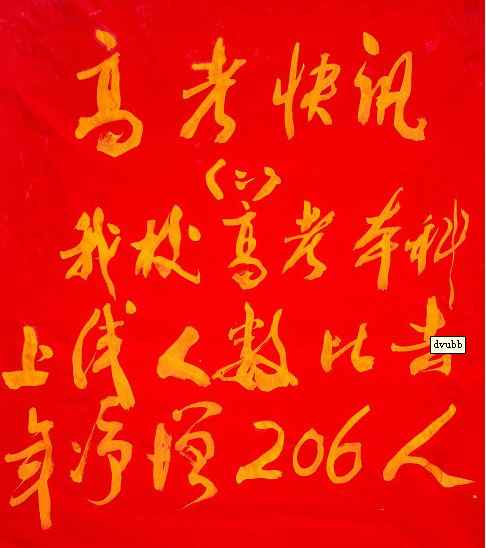 高考快讯
(二)
我校高考本科
上线人数比去
dvubb
年净增206人